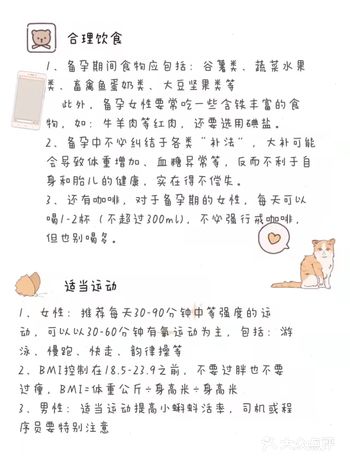 合理饮食
1、备孕期间食物应包括：谷薯类、蔬菜水果
类、畜禽鱼蛋奶类、大豆坚果类等
此外，备孕女性要常吃一些含铁丰富的食
物，如：牛羊肉等红肉，还要选用碘盐。
2、备孕中不必纠结于各类“补法”，大补可能
会导致体重增加、血糖异常等，反而不利于自
身和胎儿的健康，实在得不偿失。
3、还有咖啡，对于备孕期的女性，每天可以
喝1-2杯（不超过300ml），不必强行戒咖啡，
但也别喝多。
适当运动
1、女性：推荐每天30-90分钟中等强度的运
动，可以以30-60分钟有氧运动为主，包括：游
泳、慢跑、快走、韵律操等
2、BMI控制在18.5-23.9之前，不要过胖也不要
过瘦，BMI=体重公斤÷身高米÷身高米
3、男性：适当运动提高小蝌蚪活率，司机或程
序员要特别注意
大众点评